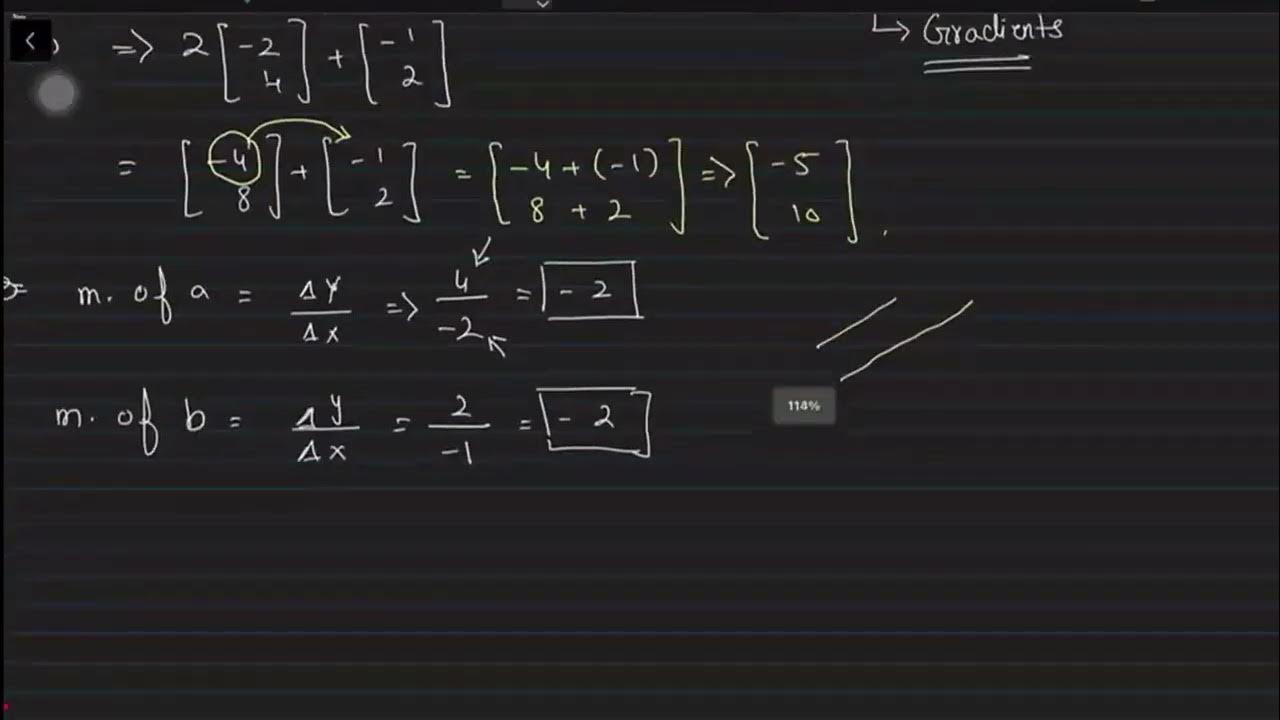 ↳ Gradients
=> 2 [-2 4] + [-1 2]
= [-4 8] + [-1 2] = [-4 + (-1) 8 + 2] => [-5 10].
m. of a = Δy/Δx => 4/-2 = -2
m. of b = Δy/Δx = 2/-1 = -2
114%